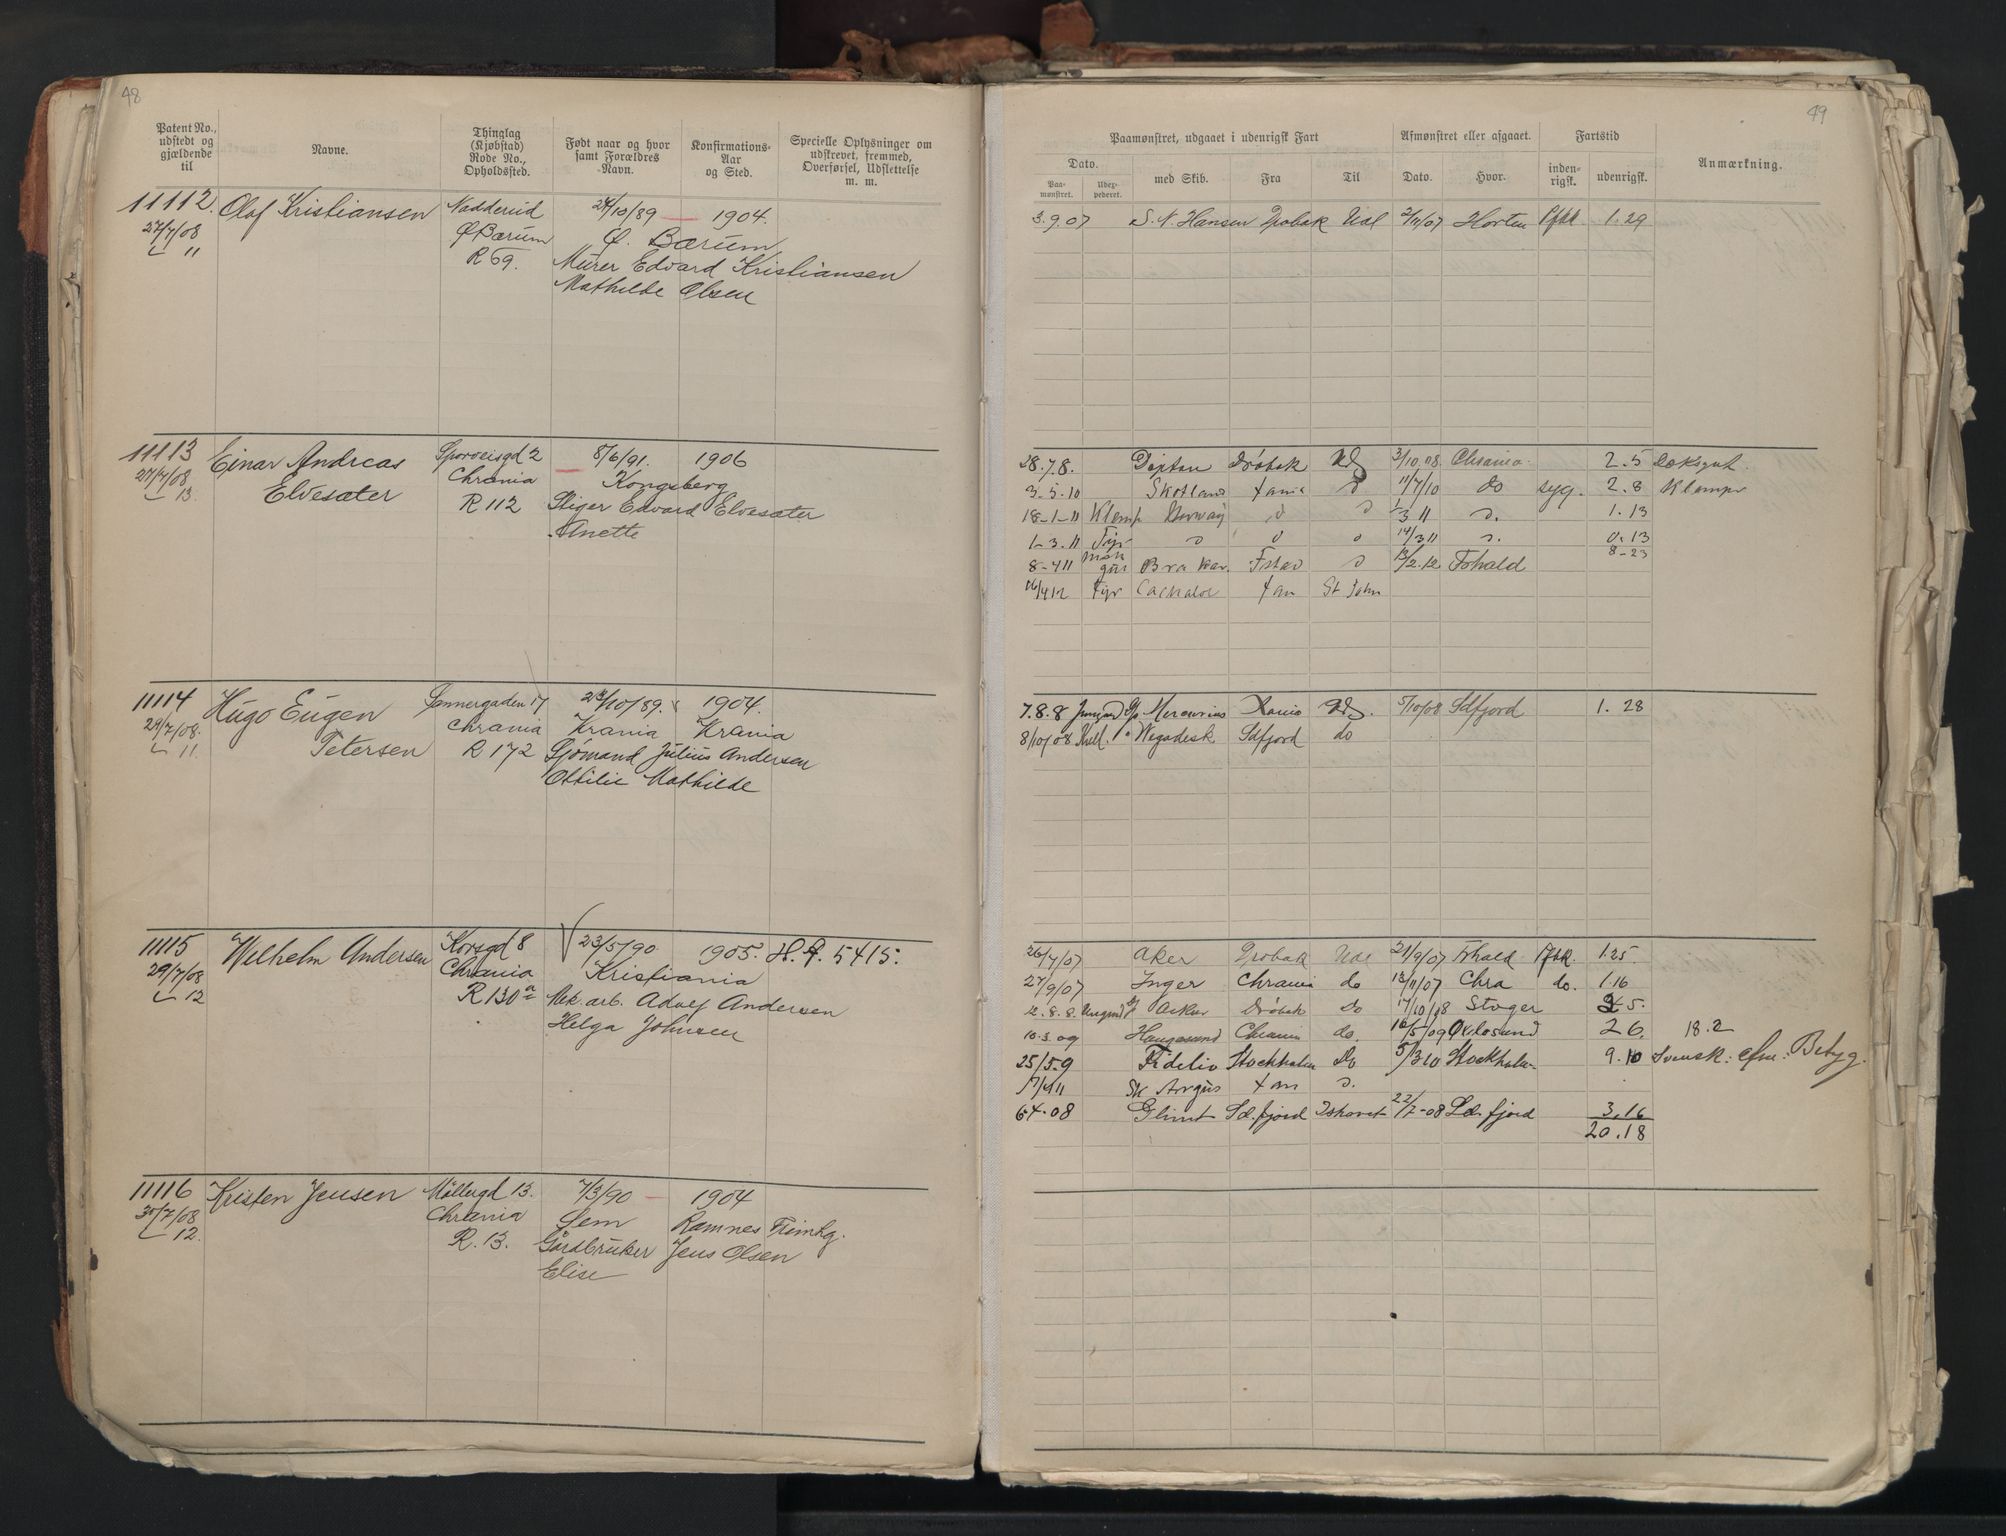 48
Patent No., udstedt og gjældende til
Navne.
Thinglag (Kjøbstad) Rode No., Opholdssted.
Født naar og hvor samt Forældres Navn.
Konfirmations-Aar og Sted.
Specielle Oplysninger om udskrevet, fremmed, Overførsel, Udslettelse m. m.
11112. Olaf Kristiansen Nadderud 24/10/89 — 1904.
27/7/08 Ø Bærum Ø. Bærum
" R 69. Murer Edvard Kristiansen
Mathilde Olsen
11113 Einar Andreas Sporveisgd 2 8/6/91. 1906
27/7/08 Elvesæter Chrania — Kongsberg
13. R 112 Stiger Edvard Elvesæter
Anette
11114 Hugo Eugen Sannergaden 17 23/10/89. 1904.
29/7/08. Petersen Chrania Krania Krania
11. R 172 Sjømand Julius Andersen
Ottilie Mathilde
11115 Wilhelm Andersen Korsgd 8 23/5/90 1905. H. A. 5415.
29/7/08 Chrania Kristiania
12 R 130 a Mek. arb. Adolf Andersen
Helga Johnsen
11116 Kristen Jensen Møllergd 13. 7/3/90 — 1904
30/7/08 Chrania Sem Ramnes
12. R. 13. Gårdbruker Jens Olsen
Elise
49
Paamønstret, udgaaet i udenrigsk Fart
Afmønstret eller afgaaet.
Fartstid
Anmærkning.
Dato.
Paa-mønstret.
Udex-pederet.
med Skib.
Fra
Til
Dato.
Hvor.
inden-rigsk.
udenrigsk.
3.9.07 S. N. Hansen Drobak Udl 2/11/07 Horten Pfsk. 1.29
28.7.8. Drøbak Uds 3/10.08. Chrania. 2.5 Dæksgut.
3.5.10 Skotland 11/7/10 do syg. 2.8
18-1-11 Norway 1/3 11 1.13
1-3.11 Fyr 14/3 11 0.13
8-4 11 Bra Kar. 13/2.12 Fshald 8-23
16/4 12 Fyr Cachalot St John
7.8.8 Mercurius 5/10/08 Sdfjord 1. 28
8/10/08 Sdfjord do
26/7/07 Aker Drobak Udl 21/9/07 Fshald Pfsk. 1.25
27/9/07 Inger Chrania do 13/11/07 Chra do. 1.16
2.8.8. Drøbak do 17/10/08 5.
10.3.09 Haugesund Chrania do. 16/5/09 Oxlosund 2 6. 18.2
25/5.9 Fidelio Stockholm Do 5/3 10 Stockholm 9.10 Svensk.
Sk Argus
6 4-08 Glimt Sd.fjord Ishavet 22/7-08 Sd. fjord 3.16
20.18